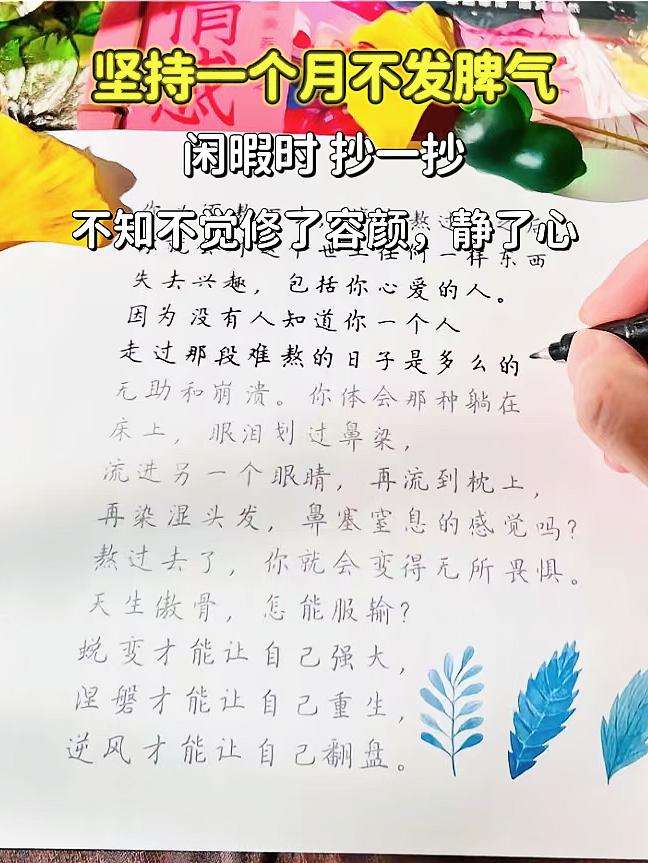 情感
坚持一个月不发脾气
闲暇时 抄一抄
不知不觉修了容颜，静了心
熬过
世上任何一样东西
失去兴趣，包括你心爱的人。
因为没有人知道你一个人
走过那段难熬的日子是多么的
无助和崩溃。你体会那种躺在
床上，眼泪划过鼻梁，
流进另一个眼睛，再流到枕上，
再染湿头发，鼻塞窒息的感觉吗？
熬过去了，你就会变得无所畏惧。
天生傲骨，怎能服输？
蜕变才能让自己强大，
涅磐才能让自己重生，
逆风才能让自己翻盘。